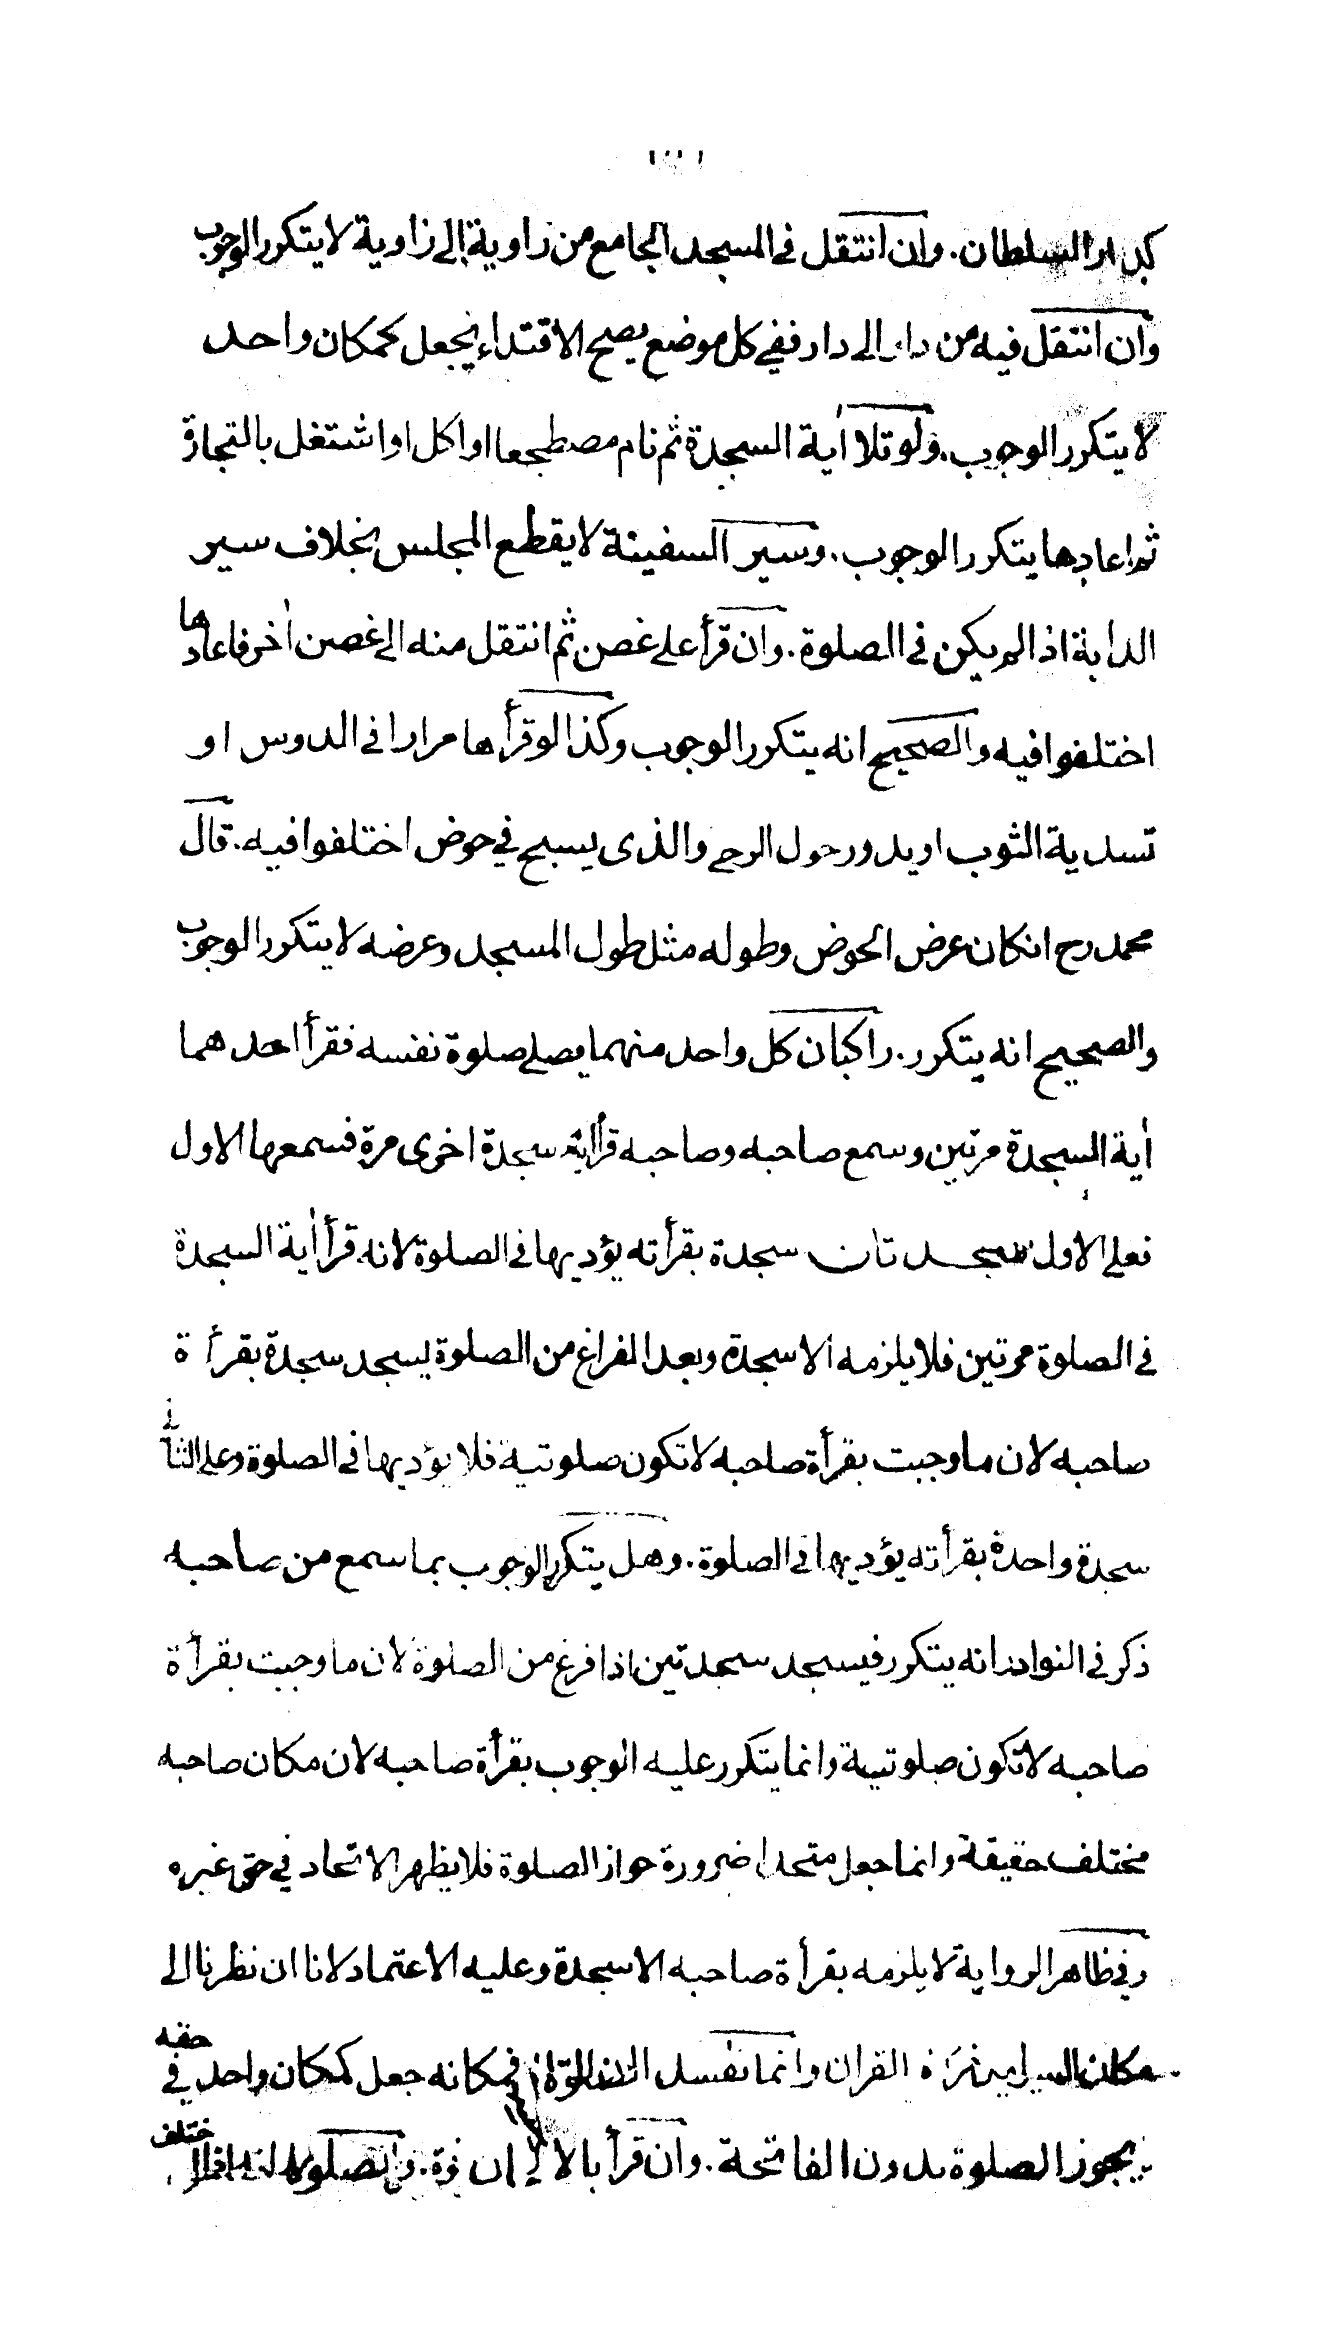 كدار السلطان. وان انتقل فى المسجد الجامع من زاوية الى زاوية لا يتكرر الوجوب
وان انتقل فيه من دار الى دار ففى كل موضع يصح الاقتداء يجعل كمكان واحد
لا يتكرر الوجوب. ولو تلا أية السجدة ثم نام مضطجعا او اكل او اشتغل بالتجارة
ثم اعادها يتكرر الوجوب. وسير السفينة لا يقطع المجلس بخلاف سير
الدابة اذا لم يكن فى الصلوة. وان قرأ على غصن ثم انتقل منه الى غصن أخر فاعادها
اختلفوا فيه والصحيح انه يتكرر الوجوب وكذا لو قرأها مرارا فى الدوس او
تسدية الثوب او يدور حول الرحى والذى يسبح في حوض اختلفوا فيه. قال
محمد رح انكان عرض الحوض وطوله مثل طول المسجد وعرضه لا يتكرر الوجوب
والصحيح انه يتكرر. راكبان كل واحد منهما يصلى صلوة نفسه فقرأ احدهما
أية السجدة مرتين وسمع صاحبه وصاحبه قرأ أية سجدة اخرى مرة فسمعها الاول
فعلى الاول سجدتان سجدة بقرأته يؤديها فى الصلوة لانه قرأ أية السجدة
فى الصلوة مرتين فلا يلزمه الا سجدة وبعد الفراغ من الصلوة يسجد سجدة بقرأة
صاحبه لان ما وجبت بقرأة صاحبه لا تكون صلوتية فلا يؤديها فى الصلوة وعلى الثانى
سجدة واحدة بقرأته يؤديها فى الصلوة. وهل يتكرر الوجوب بما سمع من صاحبه
ذكر فى النوادر انه يتكرر فيسجد سجدتين اذا فرغ من الصلوة لان ما وجبت بقرأة
صاحبه لا تكون صلوتية وانما يتكرر عليه الوجوب بقرأة صاحبه لان مكان صاحبه
مختلف حقيقة وانما جعل متحدا ضرورة جواز الصلوة فلا يظهر الاتحاد في حق غيره
وفي ظاهر الرواية لا يلزمه بقرأة صاحبه الا سجدة وعليه الاعتماد لانا ان نظرنا الى
مكان القران وانما مكانه جعل كمكان واحد في حقه
يجوز الصلوة بدون الفاتحة. وان قرأ بالا